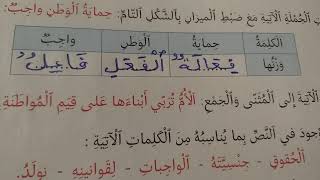 الْجُمْلَةِ الْآتِيَةِ مَعَ ضَبْطِ الْمِيزانِ بِالشَّكْلِ التّامِّ: حِمايَةُ الْوَطَنِ واجِبٌ:
الْكَلِمَةُ حِمايَةُ الْوَطَنِ واجِبٌ
وَزْنُها فِعَالَةُ الْفَعَلِ فَاعِلٌ
الْآتِيَةَ إِلى الْمُثَنّى وَالْجَمْعِ: الْأُمُّ تُرَبّي أَبْناءَها عَلى قِيَمِ الْمُواطَنَةِ
جودَ في النَّصِّ بِما يُناسِبُهُ مِنَ الْكَلِماتِ الْآتِيَةِ:
الْحُقوقِ - جِنْسِيَّتَهُ - الْواجِباتِ - لِقَوانينِهِ - نولَدُ.